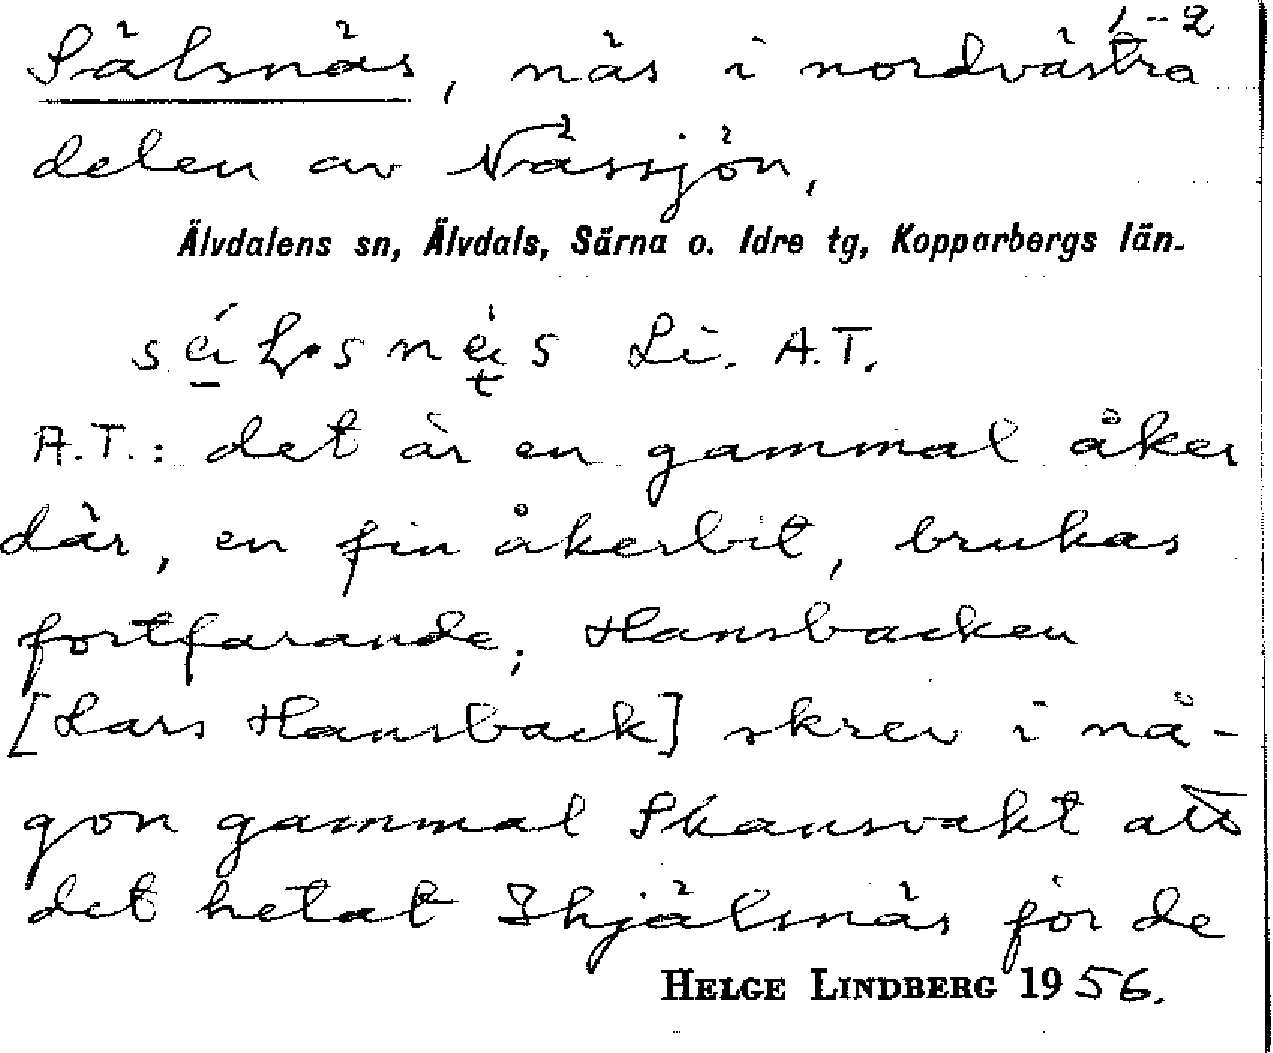 1-2
Sälsnäs, näs i nordvästra
delen av Nässjön,
Älvdalens sn, Älvdals, Särna o. Idre tg, Kopparbergs län.
Li. A.T.
A.T.: det är en gammal åker
där, en fin åkerbit, brukas
fortfarande; Hansbacken
[Lars Hansback] skrev i nå-
gon gammal Skansvakt att
det hetat Ihjälsnäs för de
HELGE LINDBERG 1956.